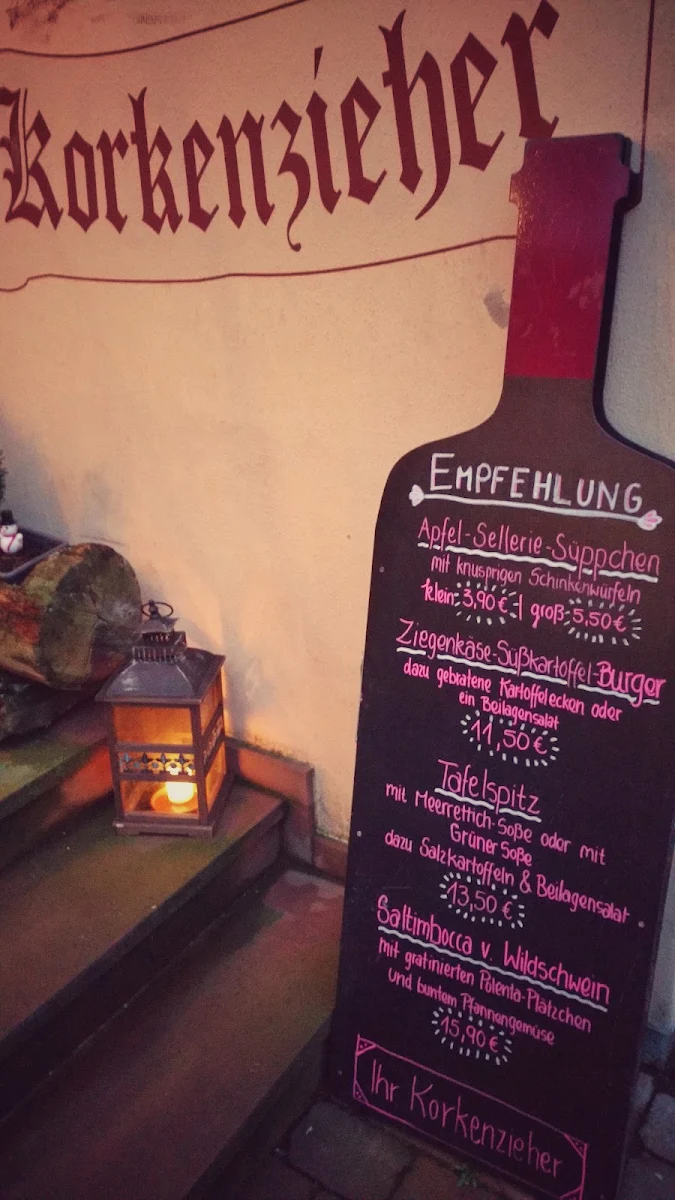 Korkenzieher
EMPFEHLUNG
Apfel-Sellerie-Süppchen
mit knusprigen Schinkenwürfeln
klein 3,90 € | groß 5,50 €
Ziegenkäse-Süßkartoffel-Burger
dazu gebratene Kartoffelecken oder
ein Beilagensalat
11,50 €
Tafelspitz
mit Meerrettich-Soße oder mit
Grüner Soße
dazu Salzkartoffeln & Beilagensalat
13,50 €
Saltimbocca v. Wildschwein
mit gratinierten Polenta-Plätzchen
und buntem Pfannengemüse
15,90 €
Ihr Korkenzieher